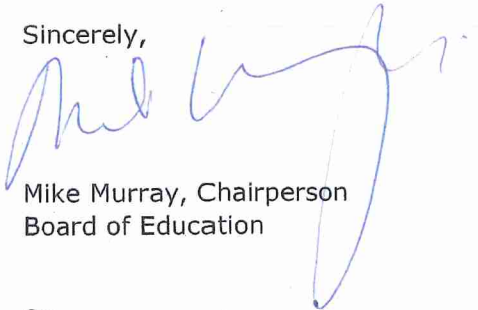 Sincerely,
Mike Murray, Chairperson
Board of Education